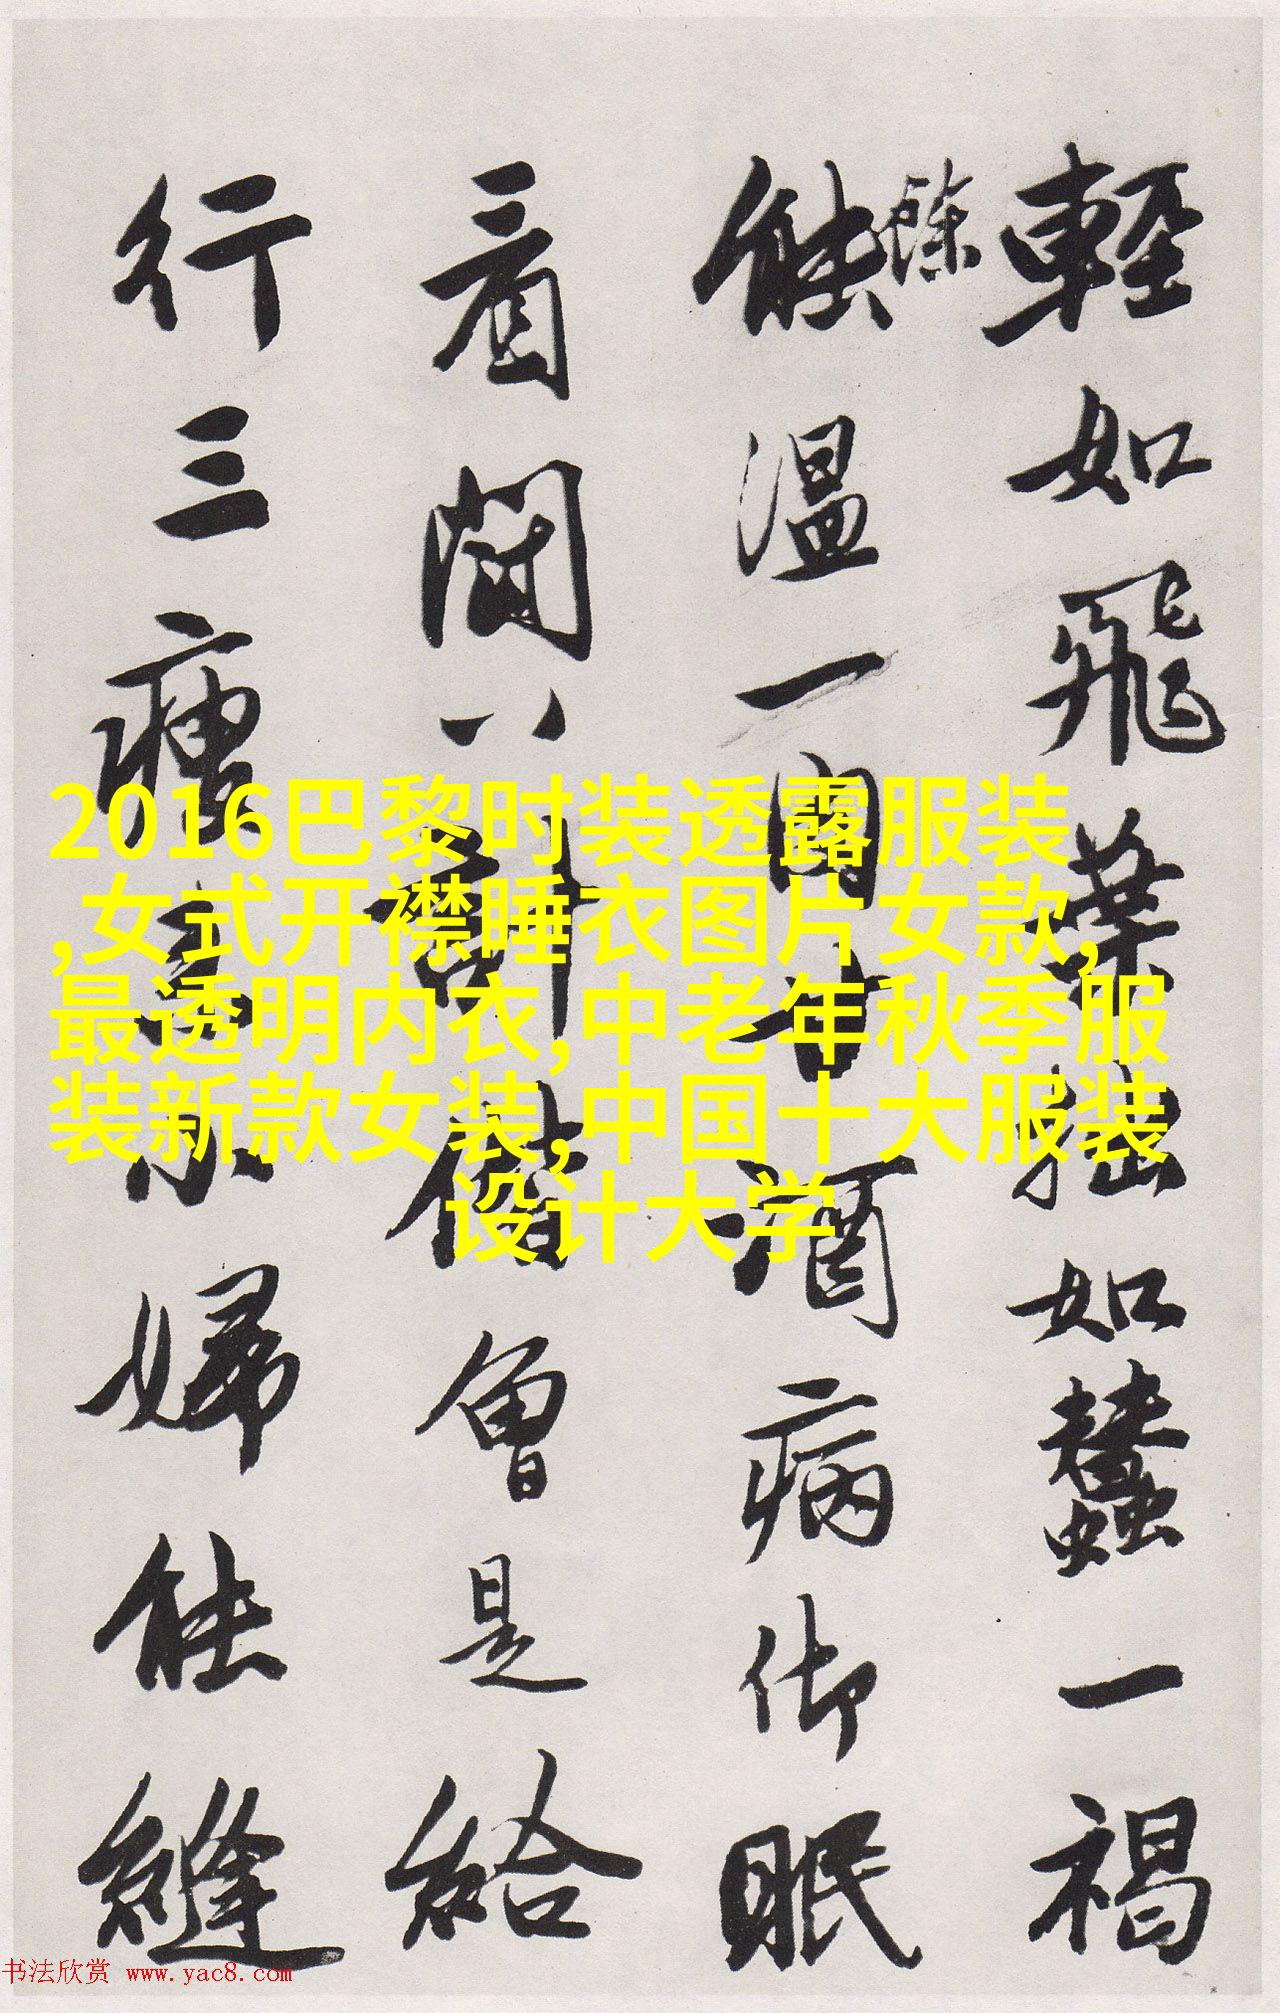 輕如飛葉拙如蠶一褐
餘
能溫一酒病眠
看八計偕曾是給
行三小婦能縫
2016巴黎时装透露服装
,女式开襟睡衣图片女款,
最透明内衣,中老年秋季服
装新款女装,中国十大服装
设计大学
书法欣赏 www.yac8.com